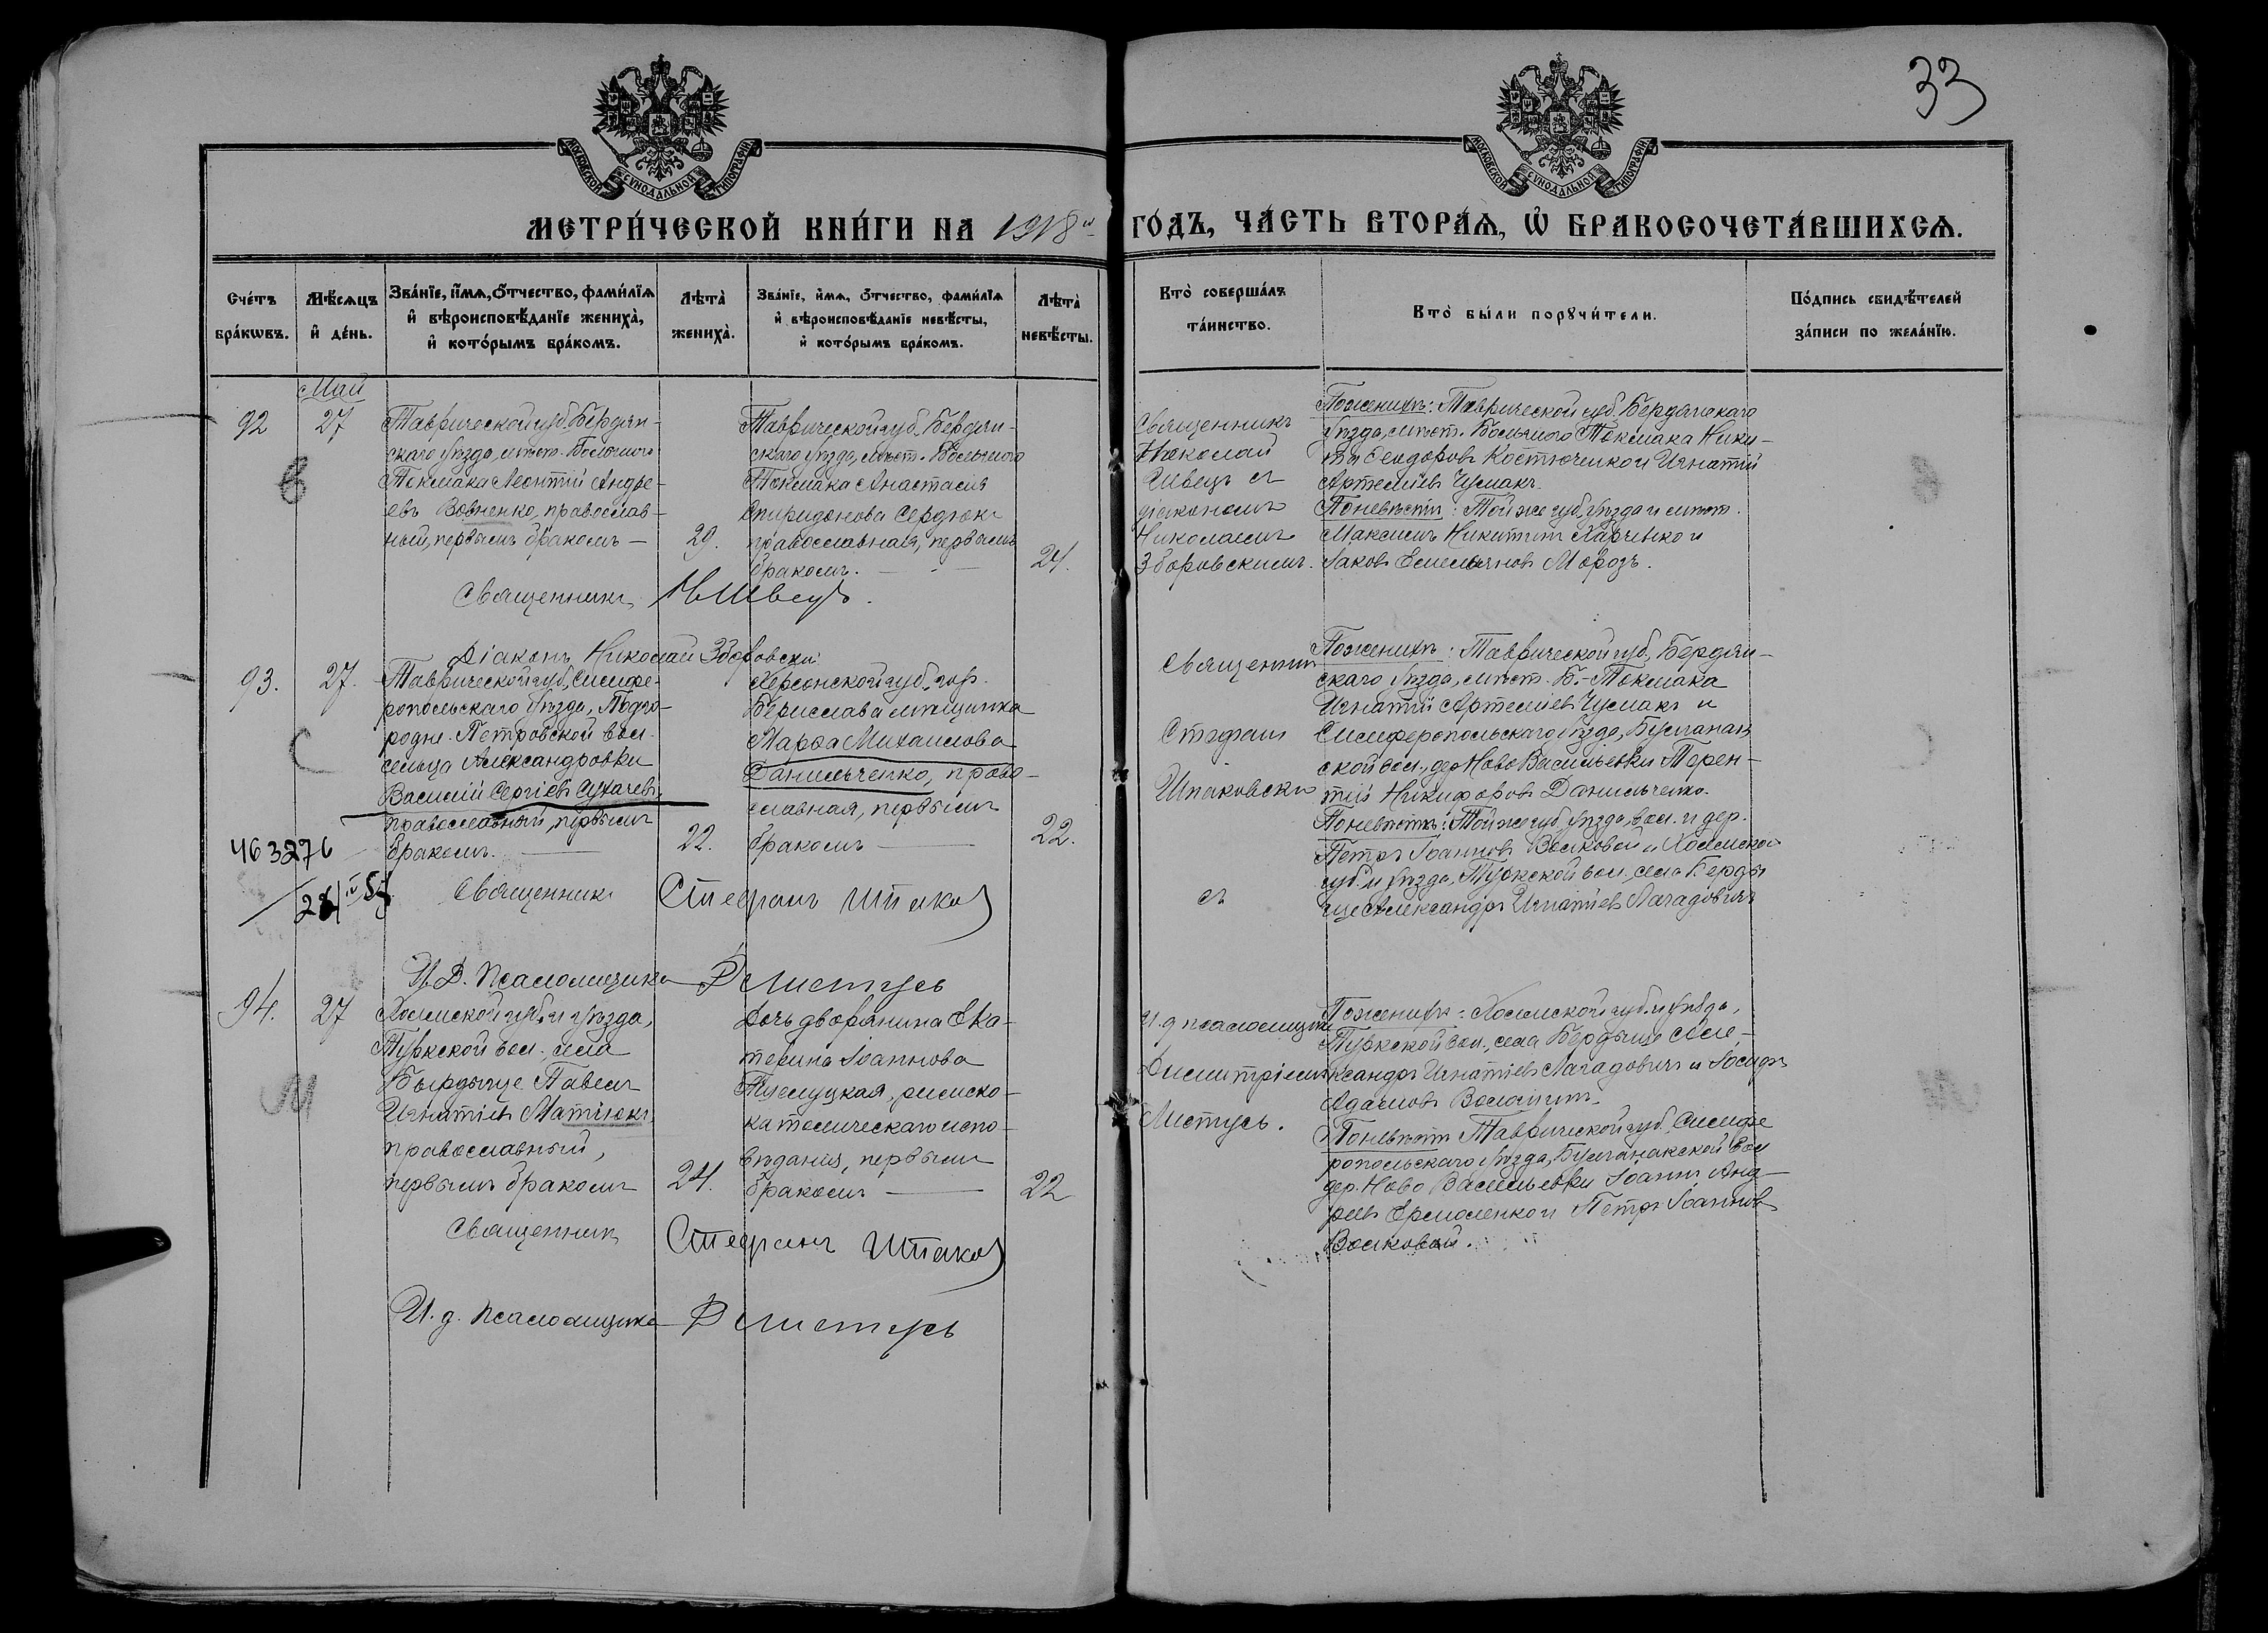 33
МОСКОВСКОЙ СУНОДАЛЬНОЙ ТИПОГРАФІИ
МОСКОВСКОЙ СУНОДАЛЬНОЙ ТИПОГРАФІИ
МЕТРИ́ЧЕСКОЙ КНИ́ГИ НА 1918й ГО́ДЪ, ЧА́СТЬ ВТОРА́Ѧ, Ѽ БРАКОСОЧЕТА́ВШИХСѦ.
Сче́тъ бра́кѡвъ.
Мѣ́сѧцъ и҆ де́нь.
Зва́нїе, и҆́мѧ, ѻ҆́тчество, фами́лїѧ
и҆ вѣроисповѣ́данїе жениха̀,
и҆ кото́рымъ бра́комъ.
Лѣта̀ жениха̀.
Зва́нїе, и҆́мѧ, ѻ҆́тчество, фами́лїѧ
и҆ вѣроисповѣ́данїе невѣ́сты,
и҆ кото́рымъ бра́комъ.
Лѣта̀ невѣ́сты.
Кто̀ соверша́лъ
та́инство.
Кто̀ бы́ли порꙋчи́тели.
По́дпись свидѣ́телей
за́писи по жела́нїю.
Май
92
27
Таврической губ. Бердян-
скаго уѣзда, мѣст. Большого
Токмака Леонтій Андре-
евъ Вовненко, православ-
ный, первымъ бракомъ —
29.
Таврической губ. Бердян-
скаго уѣзда, мѣст. Большого
Токмака Анастасия
Спиридонова Сердюкъ
православная, первымъ
бракомъ. —
24.
Священникъ
Николай
Швецъ съ
діакономъ
Николаемъ
Зборовскимъ.
По женихѣ: Таврической губ. Бердянскаго
уѣзда, мѣст. Большого Токмака Ники-
та Сидоровъ Костюченко и Игнатій
Артеміевъ Чумакъ.
По невѣстѣ: Той же губ., уѣзда и мѣст.
Максимъ Никитинъ Харченко и
Іаковъ Емельяновъ Морозъ.
В
Священникъ Н Швецъ.
Діаконъ Николай Зборовскій
93.
27.
Таврической губ., Симфе-
ропольскаго уѣзда, Подго-
родне-Петровской вол.
сельца Александровки
Василій Сергіевъ Сухачевъ,
православный, первымъ
бракомъ. —
22.
Херсонской губ., гор.
Берислава мѣщанка
Марѳа Михаилова
Данильченко, право-
славная, первымъ
бракомъ —
22.
Священник
Стефанъ
Шпаковски
съ
По женихѣ: Таврической губ., Бердян-
скаго уѣзда, мѣст. Б.-Токмака
Игнатій Артеміевъ Чумакъ и
Симферопольскаго уѣзда, Булганак
ской вол., дер. Ново Васильевки Терен-
тій Никифоровъ Данильченко.
По невѣстѣ: Той же губ., уѣзда, вол. и дер.
Петръ Іоанновъ Волковой и Холмской
губ. и уѣзда, Туркской вол. села Берды
ще Александръ Игнатіевъ Лагадовичъ
С
463276
Священникъ Стефанъ Шпаков
И. Д. Псаломщика Д Листусь
94.
27
Холмской губ. и уѣзда,
Туркской вол., села
Бырдыще Павелъ
Игнатіевъ Матіюкъ,
православный,
первымъ бракомъ
24.
Дочь дворянина Ека-
терина Іоаннова
римско-
католическаго испо-
вѣданія, первымъ
бракомъ —
22
И. д. псаломщика
Димитріемъ
Листусь.
По женихѣ: Холмской губ. и уѣзда,
Туркской вол., села Бердыще Але-
ксандръ Игнатіевъ Лагадовичъ и Іосифъ
Адамовъ
По невѣстѣ Таврической губ., Симфе
ропольскаго уѣзда, Булганакской вол
дер. Ново Васильевки Іоаннъ Анд-
реевъ Ермоленко и Петръ Іоанновъ
Волковой.
М
Священникъ Стефанъ Шпаков
И. д. псаломщика Д Листусь